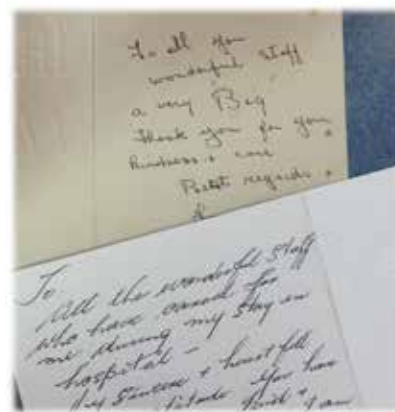 To all you
wonderful staff
a very Big
thank you for you
kindness + care
regards +
To
All the wonderful staff
who have cared for
me during my stay in
hospital -
My Sincere + heartfelt
You have